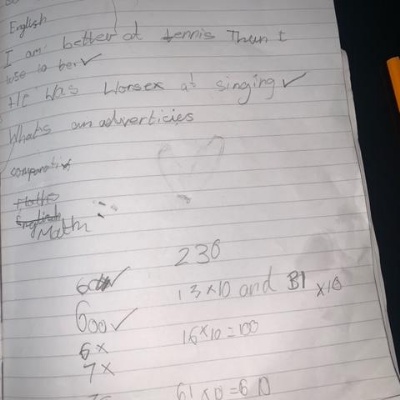 English
I am better at tennis Than I
use to be ✓
He Was Worsex at singing ✓
Whats an adverticies
comparative
Maths
English
Math
230
600 ✓
13×10 and
×10
600 ✓
16×10=100
6 ×
7 ×
61×10=6